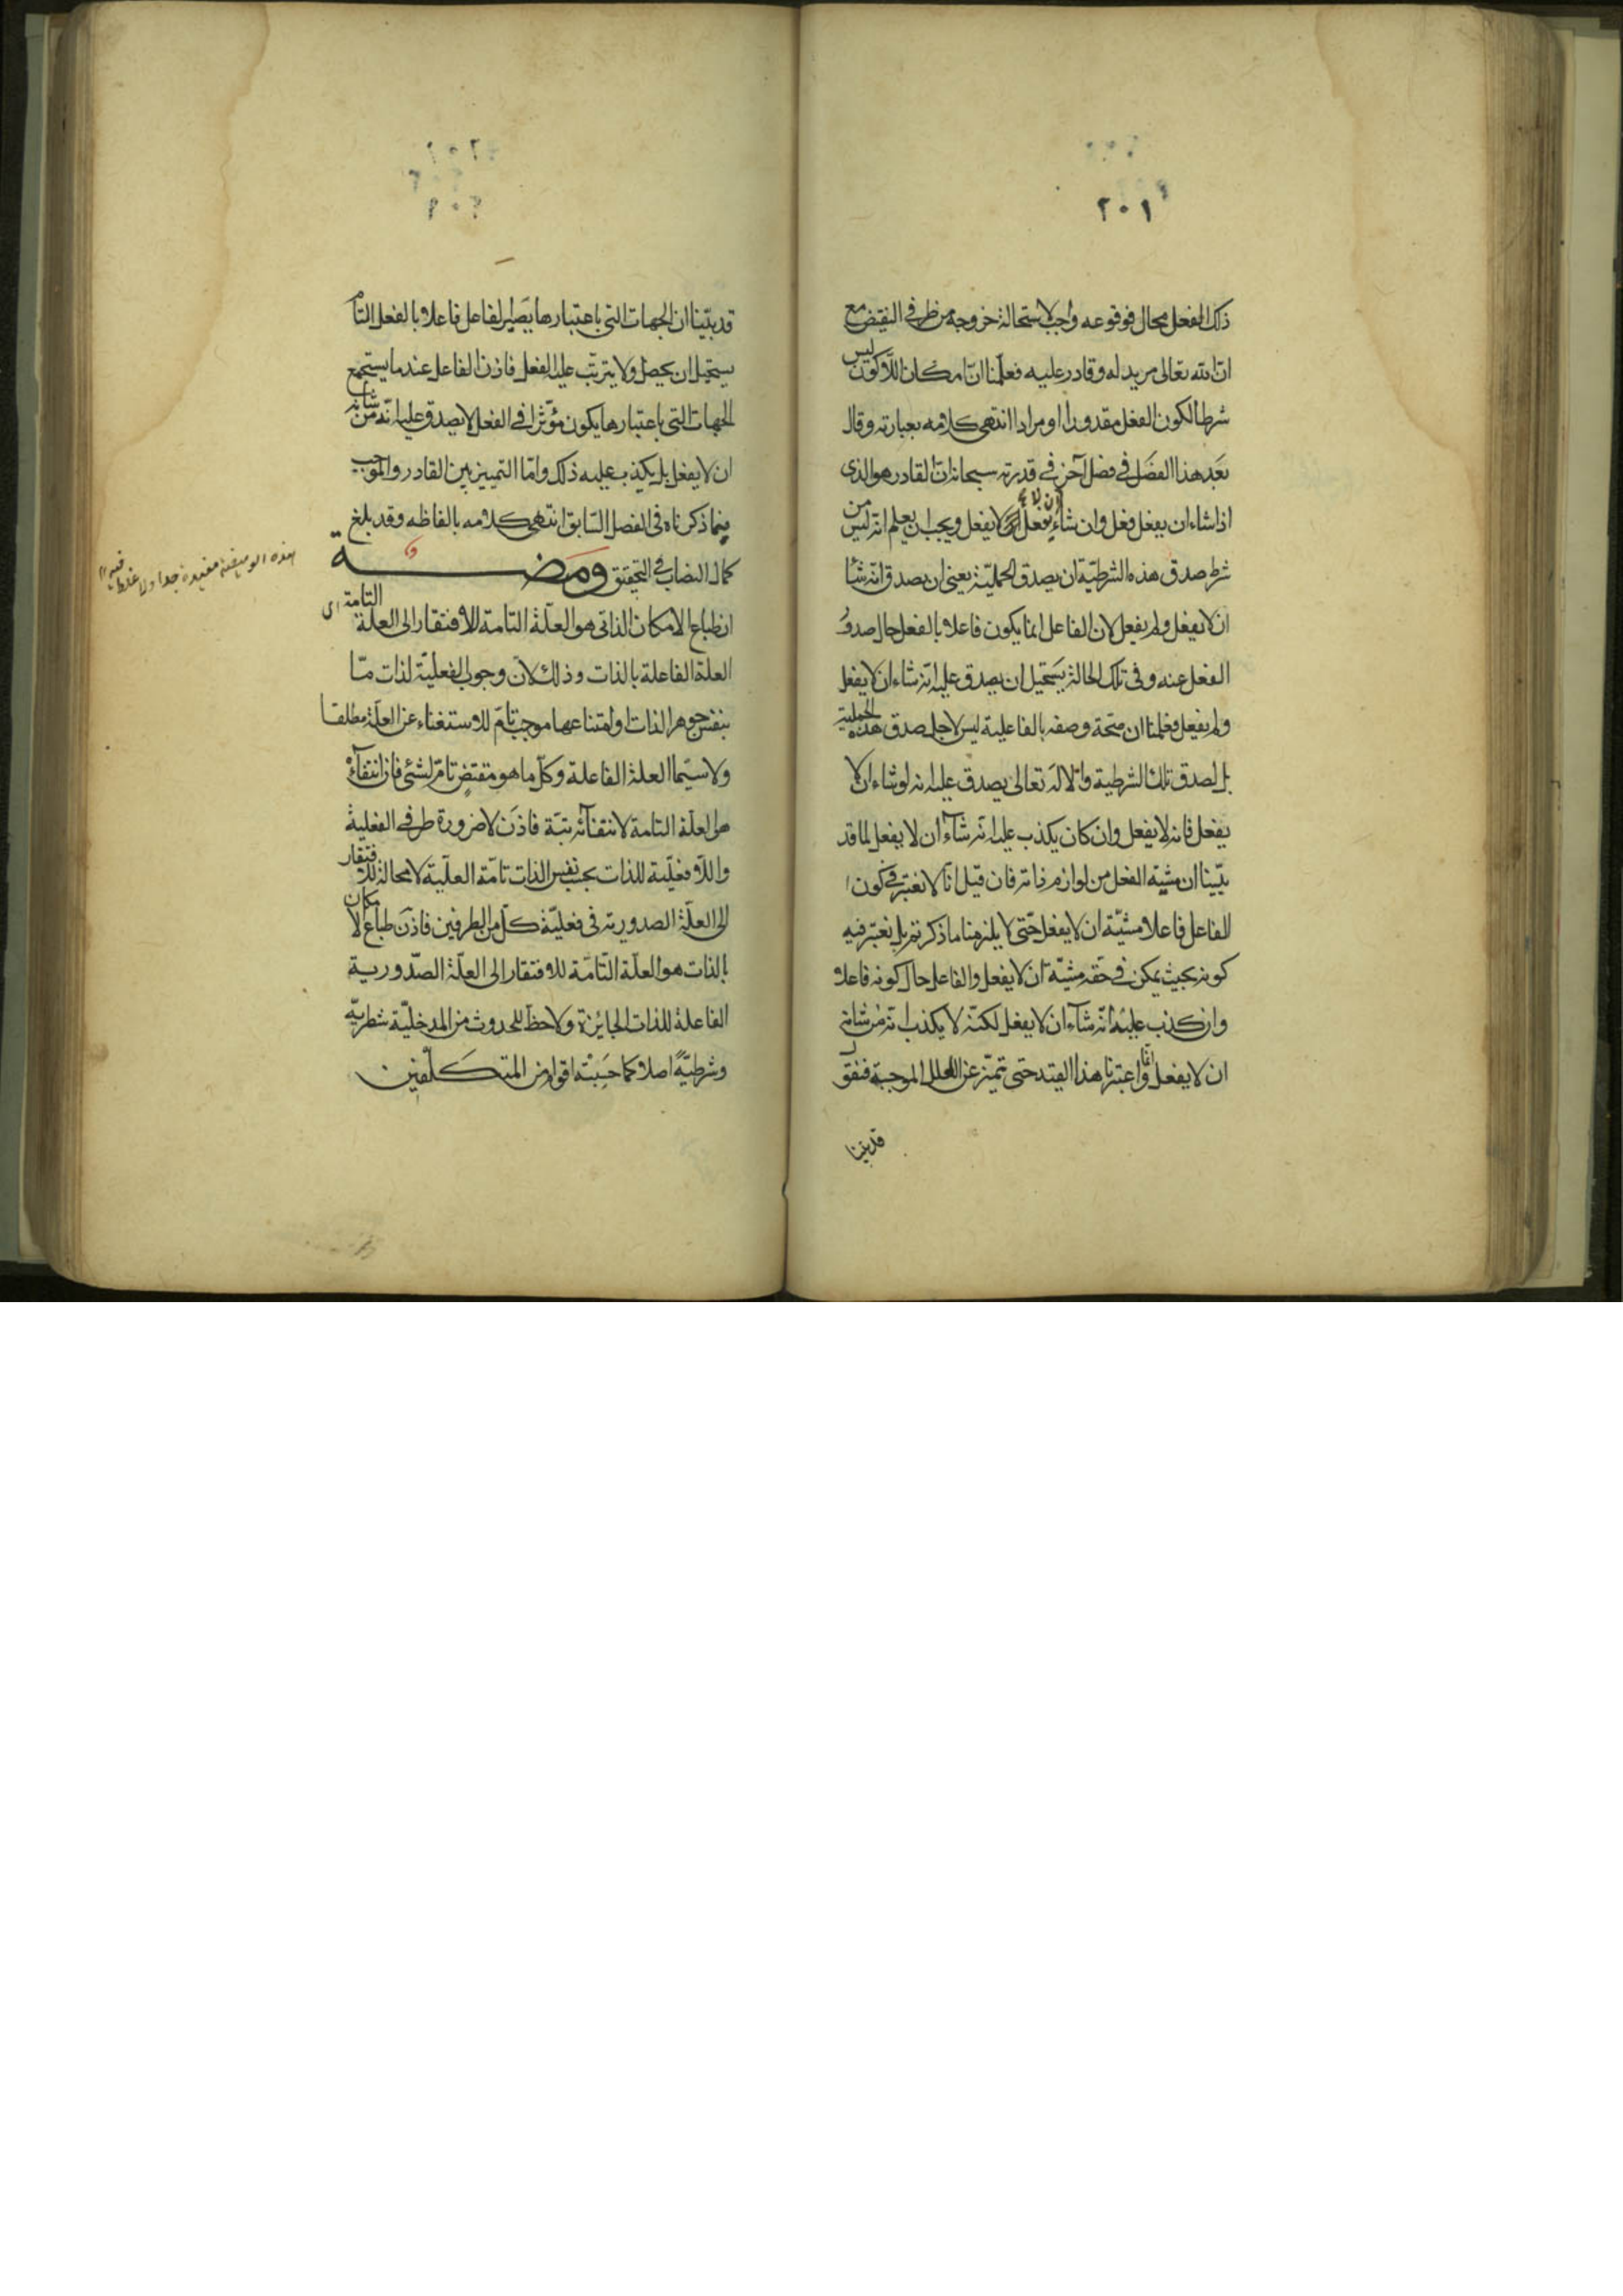 ٢٠١
ذلك الفعل محال فوقوعه واجب لاستحالة خروجه من طرفى النقيض مع
ان الله تعالى مريد له وقادر عليه فعلمنا ان امكان اللاكون ليس
شرطا لكون الفعل مقدورا او مرادا انتهى كلامه بعبارته وقال
بعد هذا الفصل فى فصل آخر فى قدرته سبحانه ان القادر هو الذى
اذا شاء ان يفعل فعل وان شاء ان لا يفعل لا يفعل ويجب ان يعلم انه ليس من
شرط صدق هذه الشرطية ان يصدق الحملية يعنى ان يصدق انه شاء
ان لا يفعل ولم يفعل لان الفاعل انما يكون فاعلا بالفعل حال صدور
الفعل عنه وفى تلك الحالة يستحيل ان يصدق عليه انه شاء ان لا يفعل
ولم يفعل فعلمنا ان صحة وصفه بالفاعلية ليس لاجل صدق هذه الحملية
بل لصدق تلك الشرطية والاله تعالى يصدق عليه انه لو شاء ان لا
يفعل فانه لا يفعل وان كان يكذب عليه انه شاء ان لا يفعل لما قد
بينا ان مشية الفعل من لوازم ذاته فان قيل انا لا نعتبر فى كون
الفاعل فاعلا مشية ان لا يفعل حتى لا يلزمنا ما ذكرتم بل نعتبر فيه
كونه بحيث يمكن فى حقه مشية ان لا يفعل والفاعل حال كونه فاعلا
وان كذب عليه انه شاء ان لا يفعل لكنه لا يكذب انه من شانه
ان لا يفعل وانما اعتبرنا هذا القيد حتى تميز عن العلل الموجبة فنقول
قد بينا
٢٠٢
قد بينا ان الجهات التى باعتبارها يصير الفاعل فاعلا بالفعل التام
يستحيل ان يحصل ولا يترتب عليه الفعل فاذن الفاعل عند ما يستجمع
الجهات التى باعتبارها يكون مؤثرا فى الفعل لا يصدق عليه انه من شانه
ان لا يفعل بل يكذب عليه ذلك واما التمييز بين القادر والموجب
فبما ذكرناه فى الفصل السابق انتهى كلامه بالفاظه وقد بلغ
كمال النصاب فى التحقيق ومضة
ان طباع الامكان الذاتى هو العلة التامة للافتقار الى العلة التامة اى
العلة الفاعلة بالذات وذلك لان وجوب الفعلية لذات ما
بنفس جوهر الذات او امتناعها موجب تام للاستغناء عن العلة مطلقا
ولا سيما العلة الفاعلة وكل ما هو مقتض تام لشئ فان انتفاءه
هو العلة التامة لانتفائه بتة فاذن لا ضرورة طرفى الفعلية
واللافعلية للذات بحسب نفس الذات تامة العلية لا محالة للافتقار
الى العلة الصدورية فى فعلية كل من الطرفين فاذن طباع الامكان
بالذات هو العلة التامة للافتقار الى العلة الصدورية
الفاعلة للذات الجايزة ولا حظ للحدوث من المدخلية شطرية
وشرطية اصلا كما حسبته اقوام من المتكلفين
هذه الوميضة مفيدة جدا ولا غلط فيه